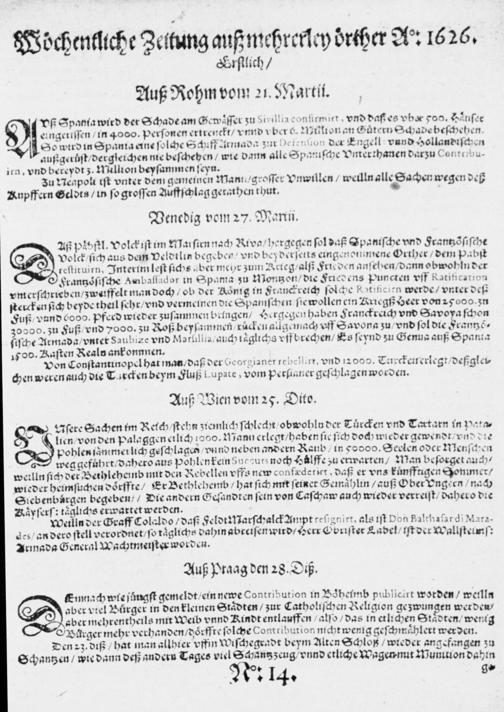 Wöchentliche Zeitung auß mehrerley örther A°: 1626.
Erstlich/
Auß Rohm vom 21. Martii.
AUß Spania wird der Schade am Gewässer zu Sivillia confirmirt, vnd daß es vber 500. Häuser
eingerissen/ in 4000. Personen ertrenckt/ vnnd vber 6. Million an Gütern Schade beschehen.
So wird in Spania eine solche Schiff Armada zur Defension der Engell: vnd Holländischen
außgerüst/ dergleichen nie beschehen/ wie dann alle Spanische Vnterthanen darzu Contribu-
irn, vnd bereydt 3. Million beysammen seyn.
Zu Neapoli ist vnter dem gemeinen Mann/ grosser Vnwillen/ weilln alle Sachen wegen deß
Kupffern Geldts/ in so grossen Auffschlag gerathen thut.
Venedig vom 27. Martii.
DAß Päbstl. Volck ist im Marsten nach Riva/ hergegen sol daß Spanische vnd Frantzösische
Volck sich aus dem Veldtlin begeben/ vnd beyderseits eingenommene Orther/ dem Pabst
restituirn. Interim lest sichs aber mehr zum Krieg/ alß Frieden ansehen/ dann obwohln der
Frantzösische Ambassador in Spania zu Monzon, die Friedens Puncten vff Ratification
vnterschrieben/ zweiffelt man doch/ ob der König in Franckreich solche Ratificirn werde/ vnter deß
stercken sich beyde theil sehr/ vnd vermeinen die Spanischen sie wollen ein Kriegß Heer von 25000. zu
Fuß/ vnnd 6000. Pferd wieder zusammen bringen/ Hergegen haben Franckreich vnd Savoya schon
30000. zu Fuß/ vnd 7000. zu Roß beysammen/ rücken allgemach vff Savona zu/ vnd sol die Frantzö-
sische Armada/ vnter Saubize vnd Marsillia/ auch täglichs vffbrechen/ Es seynd zu Genua auß Spania
1500. Kasten Realn ankommen.
Von Constantinopel hat man/ daß der Georgianer rebellirt, vnd 12000. Türcken erlegt/ deßglei-
chen weren auch die Türcken beym Fluß Eupate, vom Persianer geschlagen worden.
Auß Wien vom 25. Dito.
UNsere Sachen im Reich/ stehn ziemlich schlecht/ obwohln der Türcken vnd Tartarn in Poda-
lien/ von den Palaggen etlich 1000. Mann erlegt/ haben sie sich doch wieder gewendt/ vnd die
Pohlen jämmerlich geschlagen/ vnnd neben andern Raub/ in 50000. Seelen oder Menschen
weg geführt/ dahero aus Pohlen kein Succurs noch Hülffe zu erwarten/ Man besorget auch/
weilln sich der Bethlehemb mit den Rebellen vffs new confæderirt, daß er vns künfftigen Sommer/
wieder heimsuchen dörffte/ Er Bethlehemb/ hat sich mit seiner Gemählin/ auß Ober Vngern/ nach
Siebenbürgen begeben/ Die andern Gesandten sein von Caschaw auch wieder verreist/ dahero die
Käysers: täglichs erwartet werden.
Weilln der Graff Colaldo/ daß Feldt Marschalck Ampt resignirt, als ist Don Balthasar di Mara-
das/ an dero stell verordnet/ so täglichs dahin abreisen wird/ Herr Obrister Label/ ist der Wallsteins:
Armada General Wachtmeister worden.
Auß Praag den 28. Diß.
DEmnach wie jüngst gemeldt/ ein newe Contribution in Böheimb publicirt worden/ weilln
aber viel Bürger in den kleinen Städten/ zur Catholischen Religion gezwungen werden/
aber mehrentheils mit Weib vnnd Kindt entlauffen/ also/ das in etlichen Städten/ wenig
Bürger mehr verhanden/ dörffte solche Contribution nicht wenig geschmählert werden.
Den 23. diß/ hat man allhier vffn Wischegradt beym Alten Schloß/ wieder angefangen zu
Schantzen/ wie dann deß andern Tages viel Schantzzeug/ vnnd etliche Wagen mit Munition dahin
g-
N°: 14.